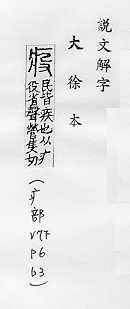 說文解字
大徐本
疫 民皆疾也从疒
役省聲營隻切
(疒部
V7下
P6
b3)